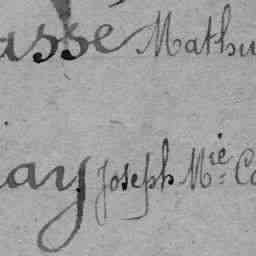 assé Mathu
ay Joseph M.ie Co